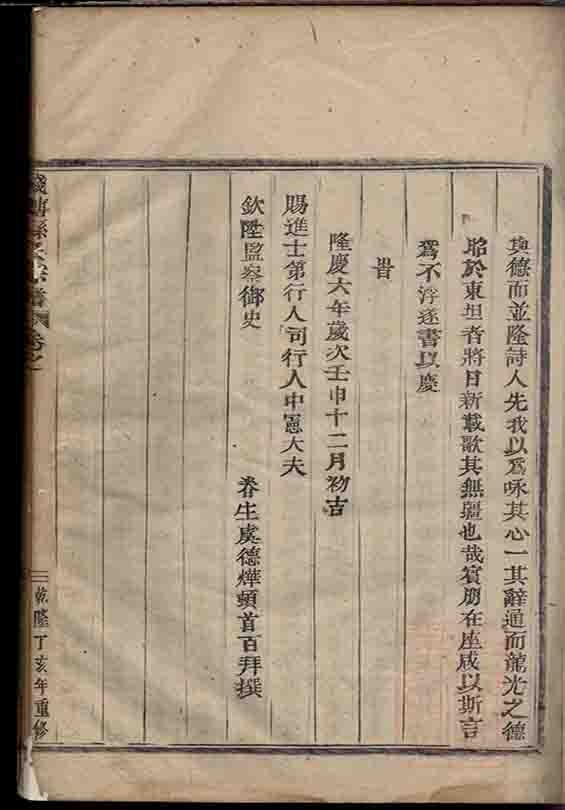 與德而並隆詩人先我以爲咏其心一其辭通而龍光之德
昭於東坦者將日新載歌其無疆也哉賓朋在座咸以斯言
爲不浮遂書以慶
旹
隆慶六年歲次壬申十二月初吉
賜進士第行人司行人中憲大夫
欽陞監察御史
眷生虞德燁頓首百拜撰
乾隆丁亥年重修